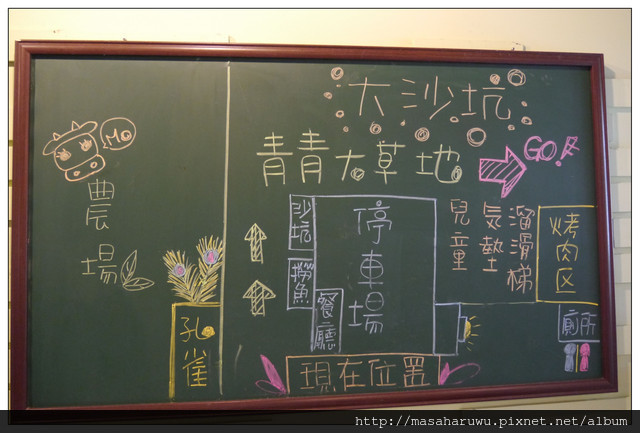 大沙坑
青青大草地
GO!
MO
農場
孔雀
沙坑
撈魚
餐廳
停車場
兒童
気墊
溜滑梯
烤肉区
廁所
現在位置
http://masaharuwu.pixnet.net/album